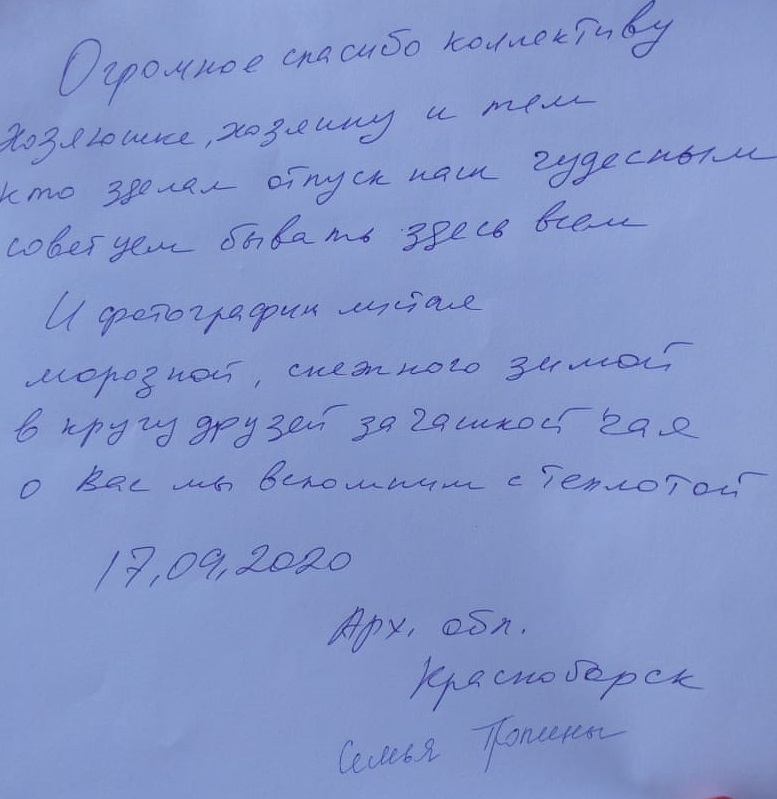 Огромное спасибо коллективу
хозяюшке, хозяину и тем
кто зделал отпуск наш чудесным
советуем бывать здесь всем
И фотографии листая
морозной, снежного зимой
в кругу друзей за чашкой чая
о Вас мы вспомним с теплотой
17,09,2020
Арх. обл.
Красноборск
Семья Тропины